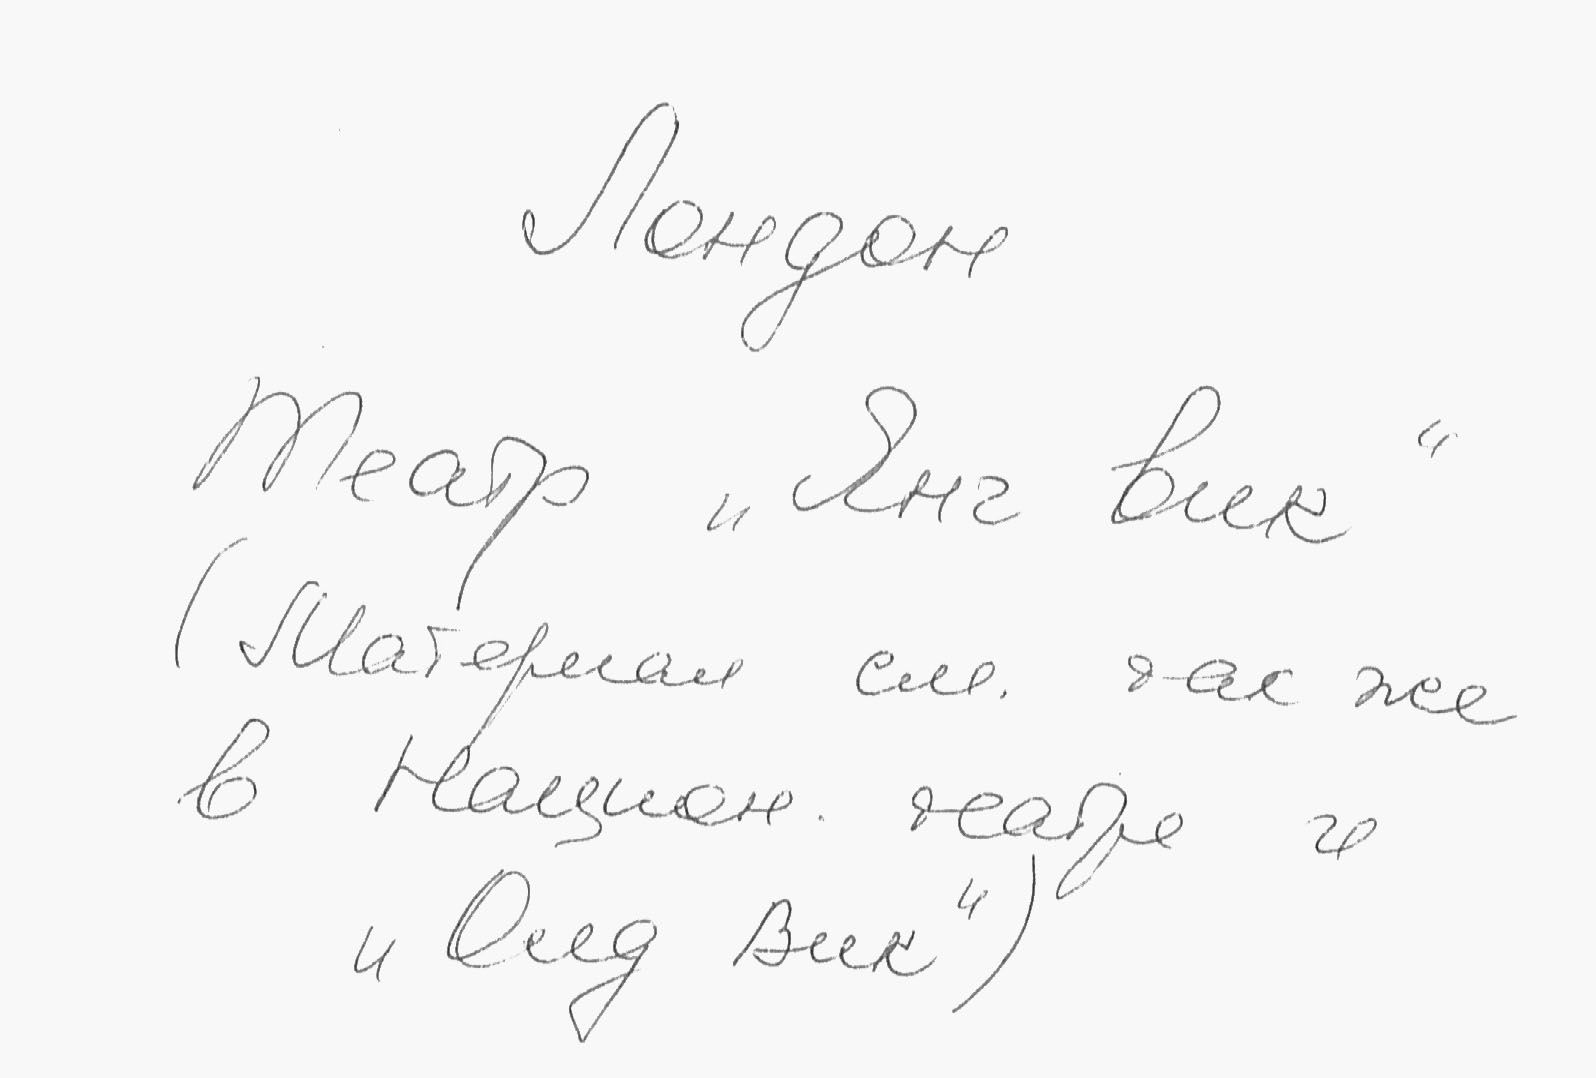 Лондон
Театр „Янг Вик“
(Материал см. так же
в Национ. театре и
„Олд Вик“)